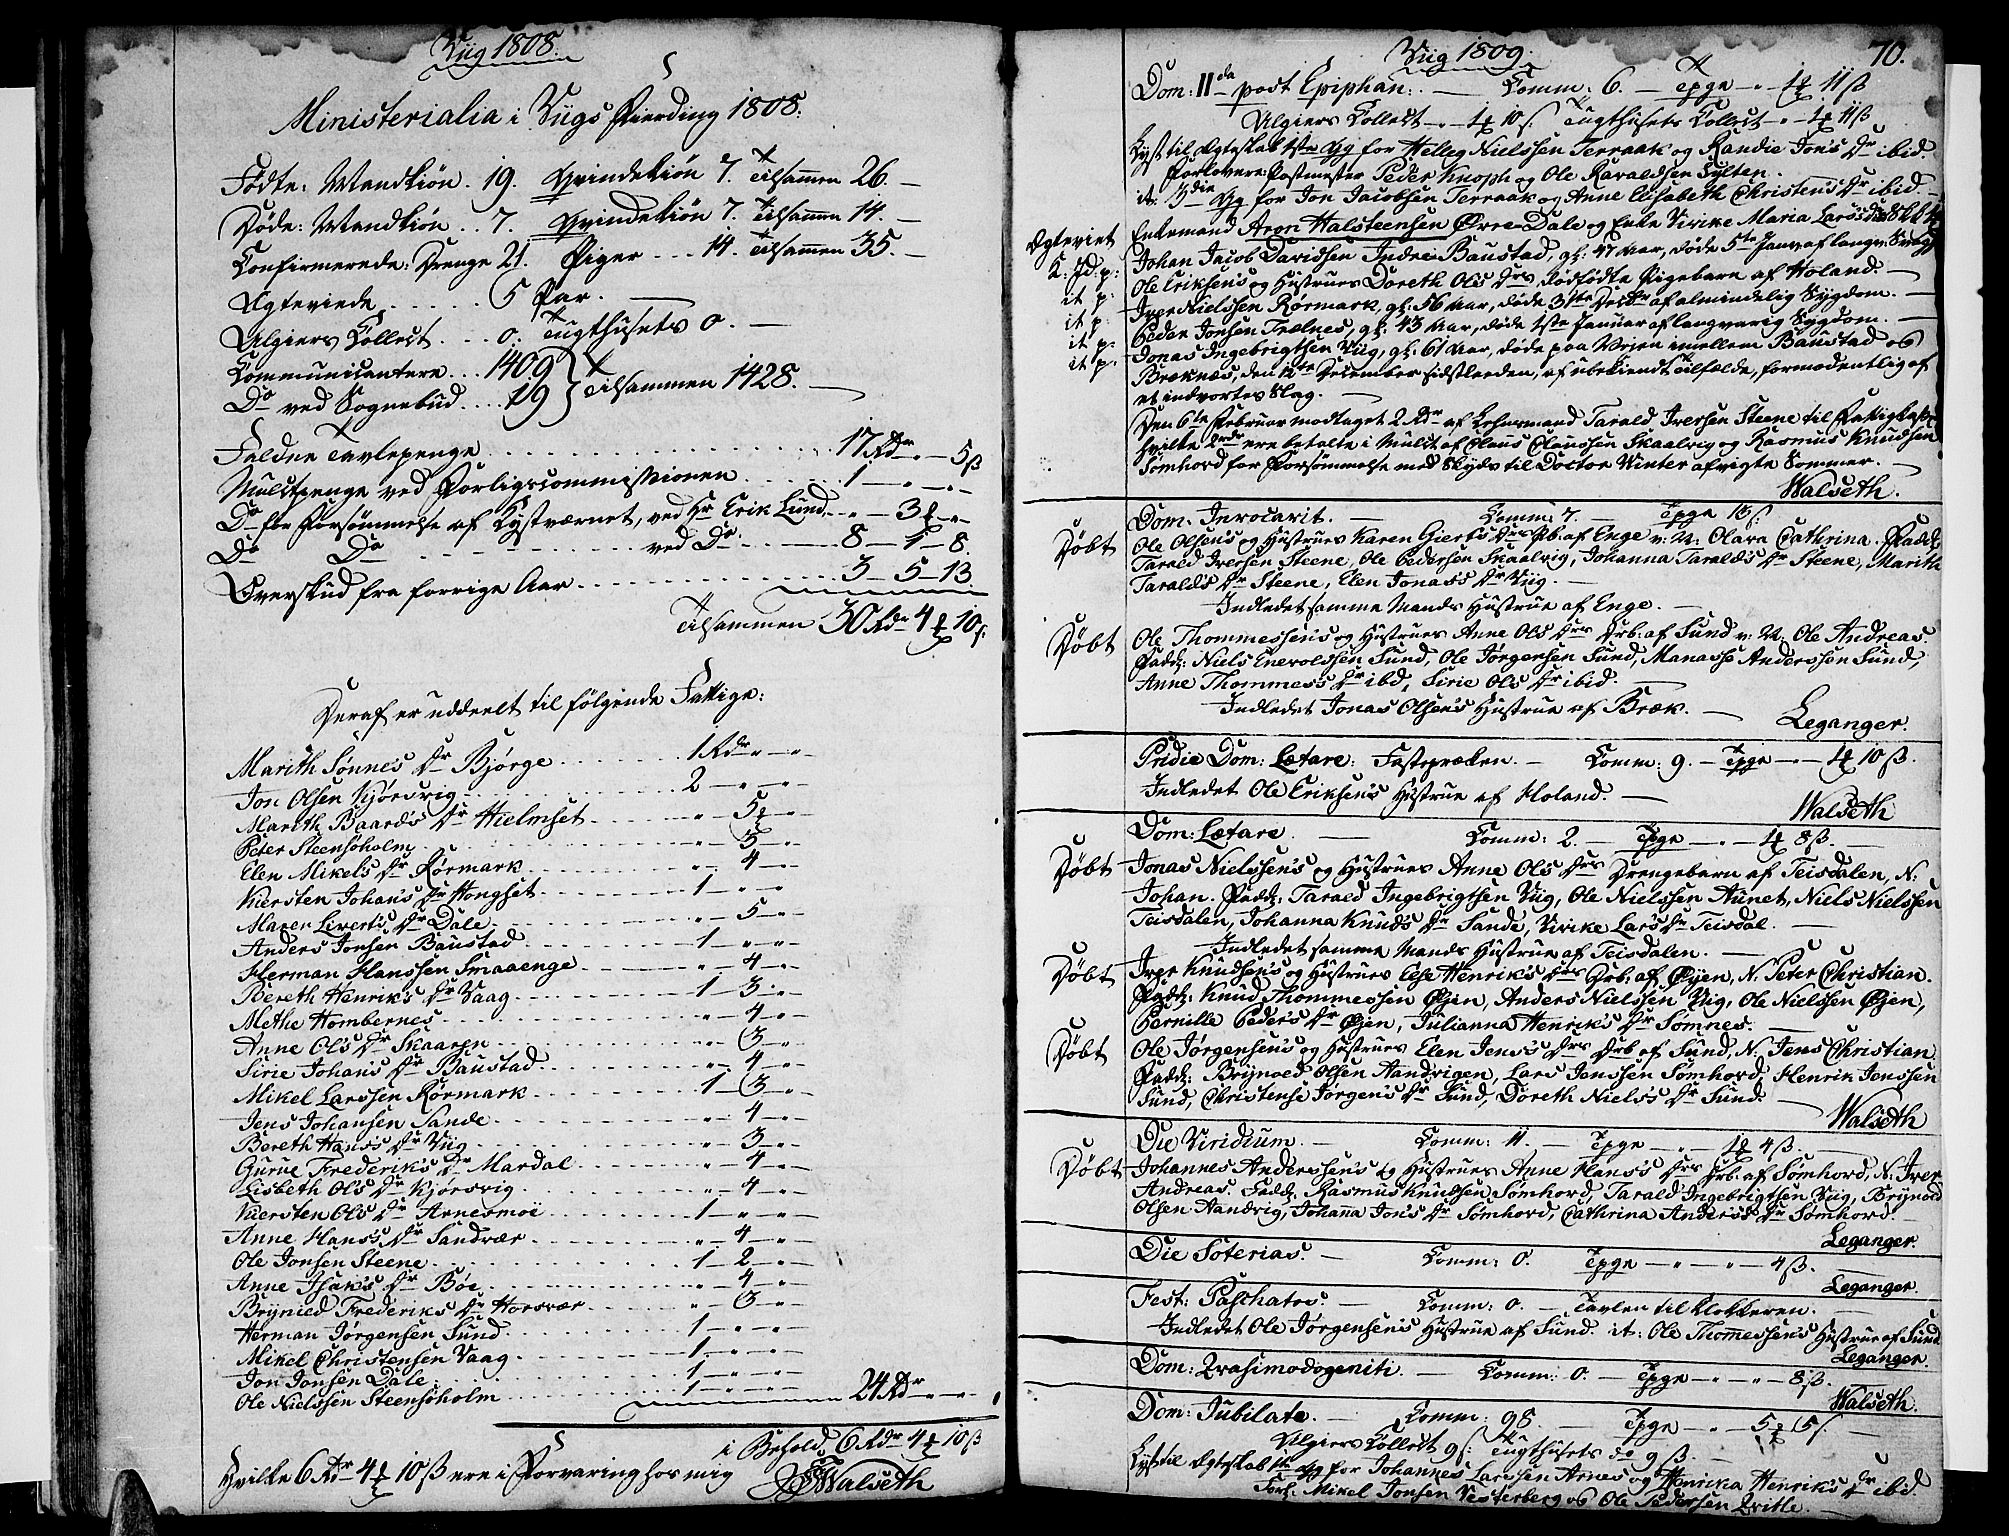 Viig 1808.
Ministerialia i Viigs Fierding 1808.
Fødte: Mandkiøn. 19. Qvindekiøn 7. Tilsammen 26.
Døde: Mandkiøn. . 7. Qvindekiøn 7. Tilsammen 14.
Confirmerede: Drenge 21. Piger . . . 14. Tilsammen 35.
Ægteviede . . . . . 5 Par.
Algiers Collect . . . 0. Tugthusets 0.
Communicantere . . . 1409
Do ved Sognebud . . . 19 } Tilsammen 1428.
Falden Tavlepenge . . . 17 Rdr - " - 5 ß
Mulctpenge ved Forligscommissionen . . . 1 - " - "
Do for Forsømmelse af Kystværnet, ved Hr Erik Lund - " - 3 - "
Do Do ved Do 8 - 1 - 8.
Overskud fra forrige Aar . . . 3 - 5 - 13
Tilsammen 30 Rdr 4 10 ß.
Deraf er uddeelt til følgende Fattige:
Marith Sønnes Dr Bjørge . . . 1 Rdr - " - "
Jon Olsen Kjørsvig . . . 2 - " - "
Marith Baards Dr Hielmset . . . " - 5 - "
Peter Steensøholm . . . " - 5 - "
Elen Mikels Dr Rørmark . . . " - 4 - "
Kiersten Johans Dr Hongset . . . 1 - " - "
Maren Liverts Dr Dale . . . " - 5 - "
Anders Jonsen Baustad . . . 1 - " - "
Herman Hanssen Smaaenge . . . " - 4 - "
Bereth Henriks Dr Vaag . . . 1 - 3 - "
Methe Hombernes . . . " - 4 - "
Anne Ols Dr Skaaren . . . " - 3 - "
Sirie Johans Dr Baustad . . . " - 4 - "
Mikel Larssen Rørmark . . . 1 - 3 - "
Jens Johansen Sande . . . " - 4 - "
Bereth Hans's Dr Viig . . . " - 3 - "
Gurue Frederik's Dr Mardal . . . " - 4 - "
Lisbeth Ols Dr Kjørsvig . . . " - 4 - "
Kiersten Ols Dr Arnesmoe . . . 1 - " - "
Anne Hans's Dr Sandvær . . . " - 4 - "
Ole Jonsen Steene . . . 1 - 2 - "
Anne Isaks Dr Bøe . . . " - 4 - "
Brynild Frederiks Dr Horsvær . . . " - 3 - "
Herman Jørgensen Sund . . . 1 - " - "
Mikel Christensen Vaag . . . 1 - " - "
Jon Jonsen Dale . . . 1 - " - "
Ole Nielssen Steensøholm . . . 1 - " - " 24 Rdr - " - "
i Behold 6 Rdr 4 10 ß
Hvilke 6 Rdr 4 10 ß ere i Forvaring hos mig
Walseth
Viig 1809.
70.
Dom: IIda post Epiphan: — Comm: 6. — Tpge - " - 1 11 ß
Algiers Collect - " - 1 10 ß. Tugthusets Collect - " - 1 11 ß
Lyst til Ægteskab 1ste Gg for Helleg Nielssen Terraak og Randie Jons Dr ibid.
Forlovere: Postmester Peder Knoph og Ole Haraldsen Sylten.
it: 3die Gg for Jon Jacobsen Terraak og Anne Elisabeth Christens Dr ibid.
Ægteviet Enkemand Aron Halsteensen Øvre-Dale og Enke Virike Maria Lars's
K. Jd. p: Johan Jacob Davidsen Indre Baustad, gl: 47 Aar, døde 5te Janv: af langv: Svagh
it p: Ole Eriksens og Hustrues Doreth Ols Drs dødfødte Pigebarn af Holand.
it p: Iver Nielssen Rørmark, gl: 56 Aar, døde 31te Decbr af almindelig Sygdom.
it p: Peder Jonsen Trælnes, gl: 43 Aar, døde 1ste Januar af langvarig Sygdom.
it p: Jonas Ingebrigtsen Viig, gl: 61 Aar, døde paa Veien imellem Baustad og
Bræknes, den 12te December sidstleeden, af ubekiendt Tilfælde, formodentlig af
et indvortes Slag.
Den 6te Februar modtaget 2 Rdr af Lehnsmand Tarald Iversen Steene til Fattigkassen
hvilke 2 Rdr ere betalte i Mulct af Claus Claussen Skaalvig og Rasmus Knudsen
Sømhord for Forsømmelse med Skyds til Doctor Winter afvigte Sommer.
Walseth.
Dom: Invocavit. — Comm: 7. — Tpge 18 ß.
Døbt Ole Olsens og Hustrues Karen Gierts Drs Pb. af Enge v: N: Olava Cathrina. Fadd:
Tarald Iversen Steene, Ole Pedersen Skaalvig, Johanna Taralds Dr Steene, Marith
Taralds Dr Steene, Elen Jonas's Dr Viig.
Indledet samme Mands Hustrue af Enge.
Døbt Ole Thommessens og Hustrues Anne Ols Drs Drb: af Sund v: N: Ole Andreas.
Fadd: Niels Enevoldsen Sund, Ole Jørgensen Sund, Manasse Anderssen Sund,
Anne Thommes's Dr ibd, Sirie Ols Dr ibid.
Indledet Jonas Olsens Hustrue af Bræk.
Leganger.
Pridie Dom: Lætare: Fasteprædken. — Comm: 9. — Tpge - " - 1 10 ß.
Indledet Ole Eriksens Hustrue af Holand.
Walseth
Dom: Lætare. — Comm: 2. — Tpge - " - 1 8 ß.
Døbt Jonas Nielssens og Hustrues Anne Ols Drs Drengebarn af Teisdalen, N:
Johan. Fadd: Tarald Ingebrigtsen Viig, Ole Nielssen Aunet, Niels Nielssen
Teisdalen, Johanna Knud's Dr Sande, Virike Lars Dr Teisdal.
Indledet samme Mands Hustrue af Teisdalen.
Døbt Iver Knudsens og Hustrues Else Henrik's Drs Drb: af Øyen, N. Peter Christian.
Fadd: Knud Thommessen Øyen, Anders Nielssen Viig, Ole Nielssen Øyen,
Pernille Peders Dr Øyen, Julianna Henriks Dr Sømnes.
Døbt Ole Jørgensens og Hustrues Elen Jens's Drs Drb af Sund, N. Jens Christian
Fadd: Brynild Olsen Aandvigen, Lars Jenssen Sømhord, Henrik Jenssen
Sund, Christense Jørgens Dr Sund, Doreth Niels's Dr Sund.
Walseth
Die Viridium. — Comm: 11. — Tpge - " - 1 4 ß.
Døbt Johannes Anderssens og Hustrues Anne Hans's Drs Drb: af Sømhord, N. Iver
Andreas. Fadd: Rasmus Knudsen Sømhord, Tarald Ingebrigtsen Viig, Brynild
Olsen Aandvig, Johanna Jons Dr Sømhord, Cathrina Anders's Dr Sømhord.
Leganger.
Die Soterias. — Comm: 0. Tpge - " - " - 4 ß.
Leganger.
Fest: Paschatos. — Comm: 0. — Tavlen til Klokkeren.
Indledet Ole Jørgensens Hustrue af Sund. it: Ole Thomessen's Hustrue af Sund
Leganger
Dom: Qvasimodogeniti. — Comm: 0. — Tpge - " - " - 8 ß.
Walseth.
Dom: Jubilate. — Comm: 98. — Tpge - " - 5 5 ß.
Algiers Collect 9 ß: Tugthusets do 9 ß.
Lyst til Ægteskab 1ste Gg for Johannes Larssen Arnes og Henrika Henriks Dr ibid.
Forl: Mikel Jonsen Vesterberg og Ole Pedersen Qvitle.